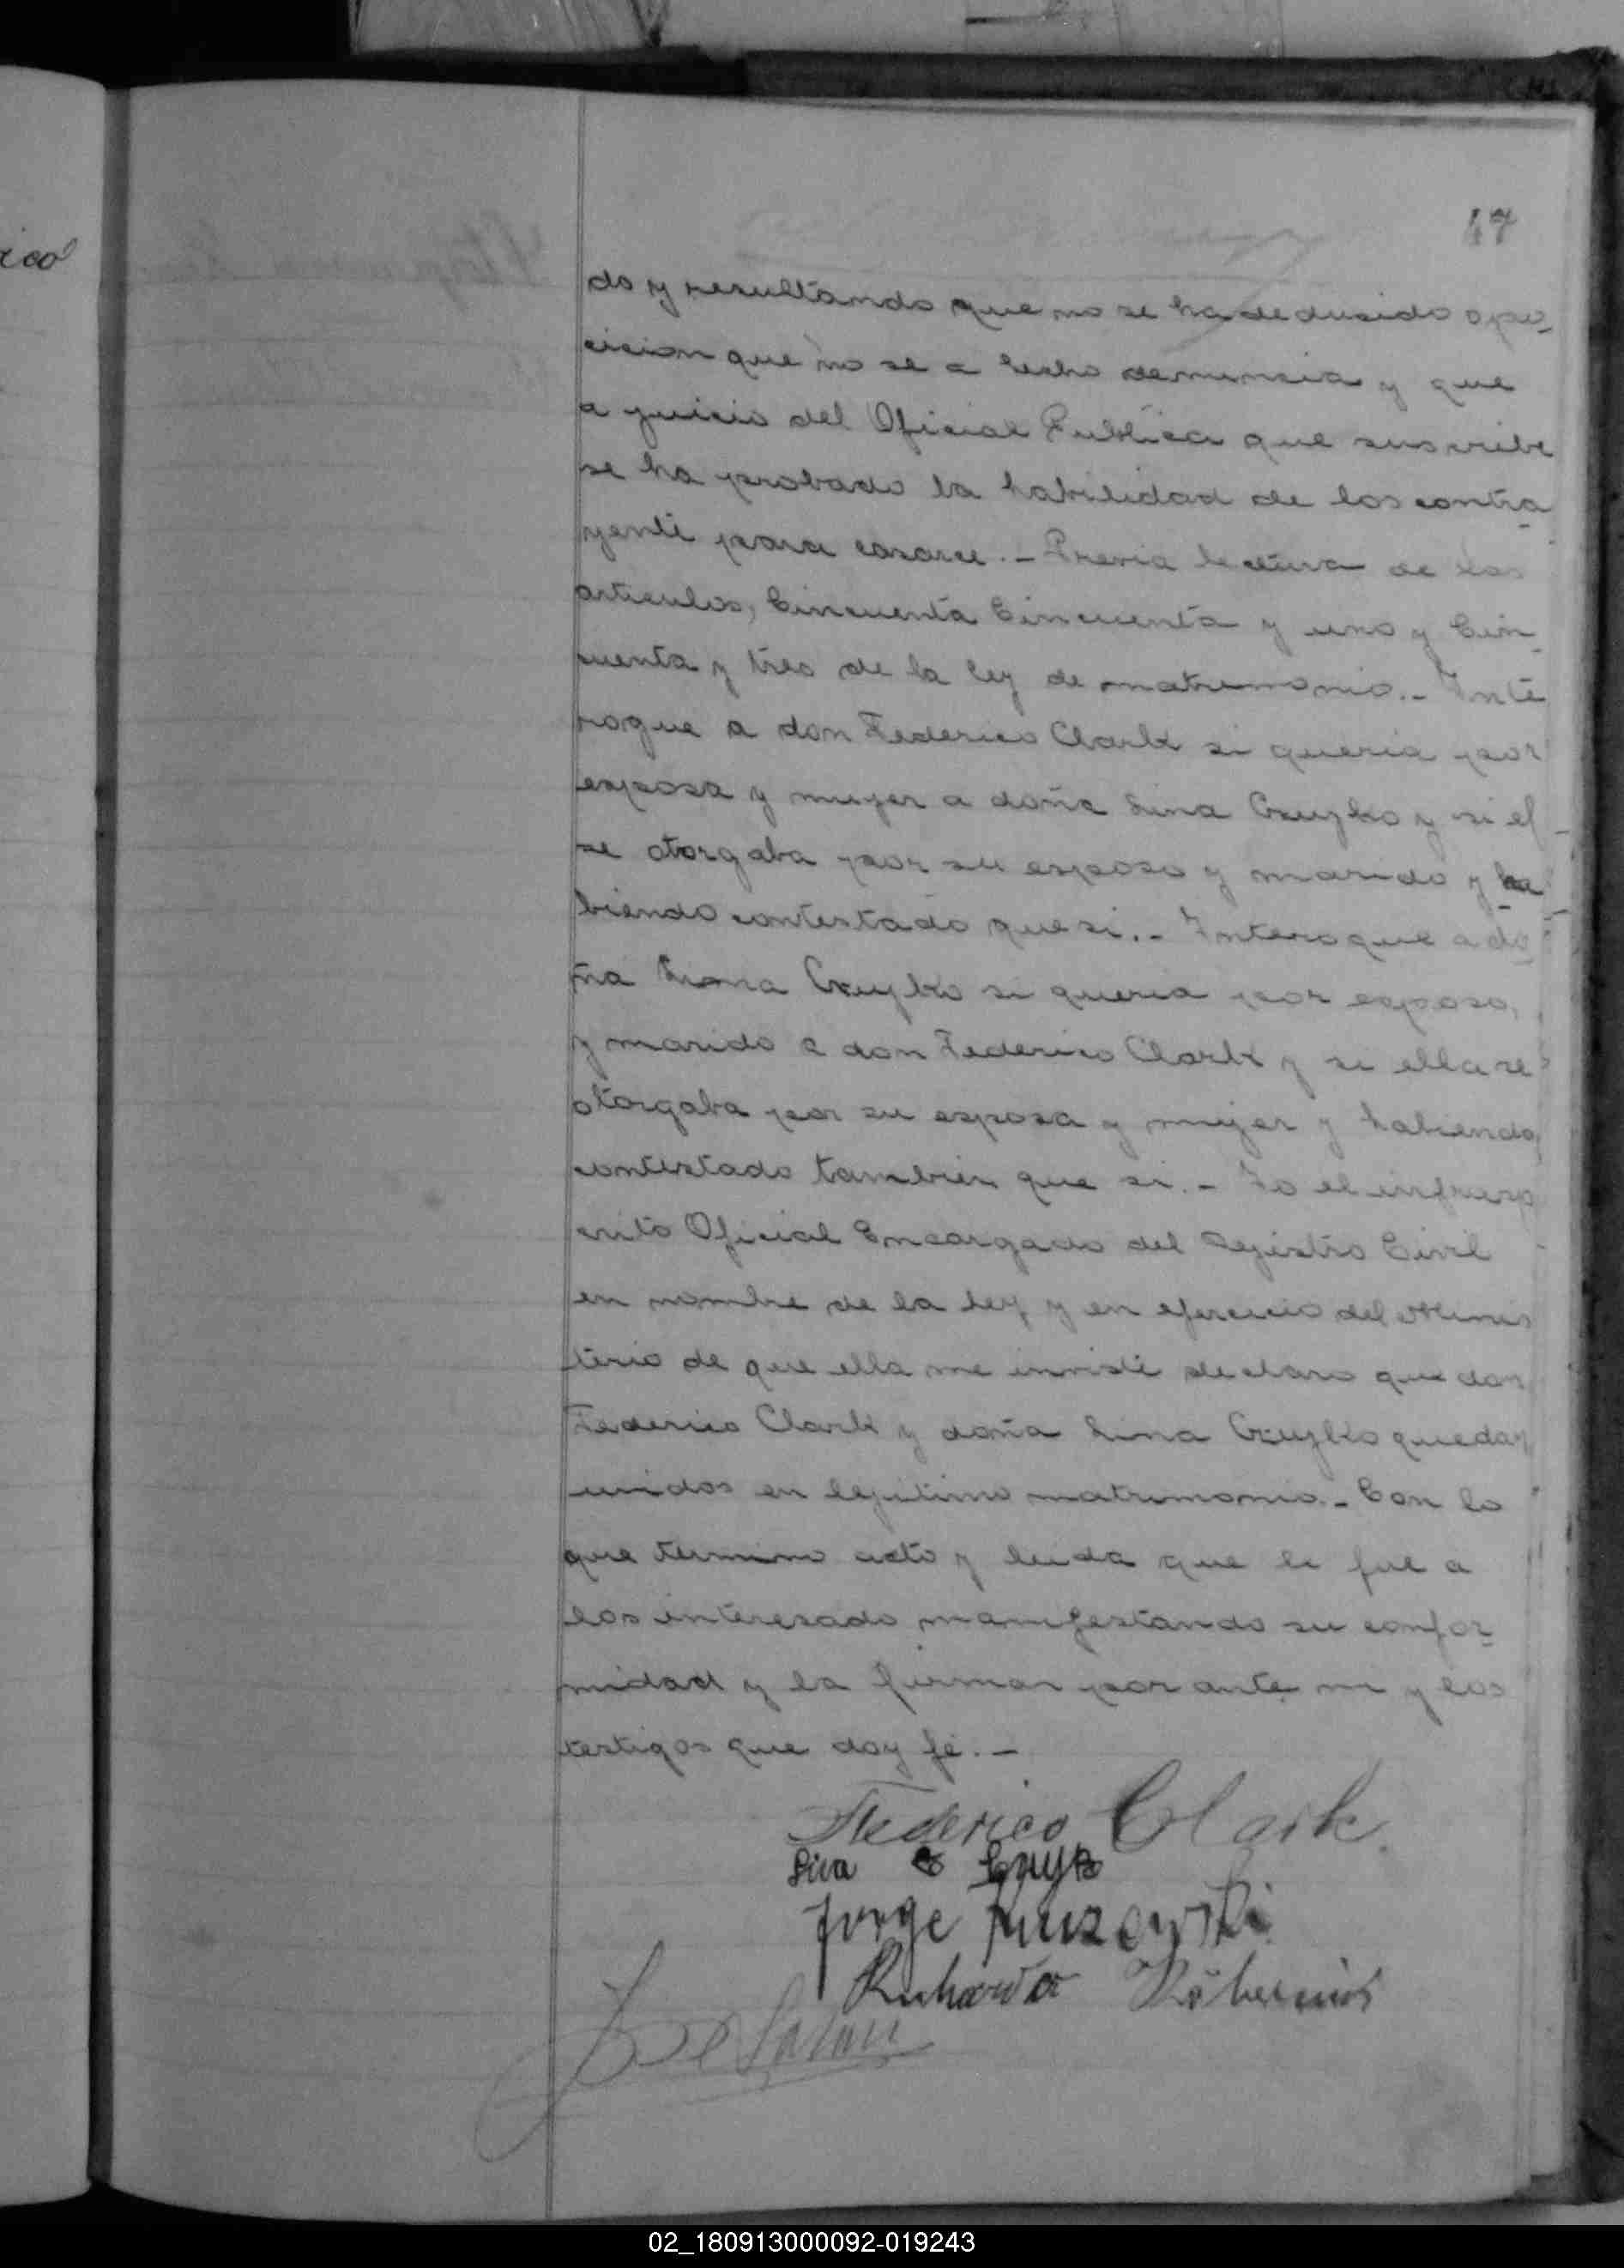 ico
47
do y resultando que no se ha deducido opo-
cicion que no se a hecho denuncia y que
a juicio del Oficial Publica que suscribe
se ha probado la habilidad de los contra
yente para casarce. - Previa lectura de los
articulos, Cincuenta Cincuenta y uno y Cin-
cuenta y tres de la ley de matrimonio. - Inte
roque a don Federico Clark si queria por
esposa y mujer a doña Lina Czuyko y si el
se otorgaba por su esposo y marido y ha
biendo contestado que si. - Interoque a do
ña Lina Czuyko si queria por esposo,
y marido a don Federico Clark y si ella se
otorgaba por su esposa y mujer y habiendo
contestado tambien que si. - Yo el infrasc
crito Oficial Encargado del Registro Civil
en nombre de la ley y en ejercicio del Minis
terio de que ella me inviste declaro que don
Federico Clark y doña Lina Czuyko quedan
unidos en legitimo matrimonio. - Con lo
que termino acto y leida que le fue a
los interesado manifestando su confor-
midad y la firman por ante mi y los
testigos que doy fé. -
Federico Clark.
Jorge
02_180913000092-019243